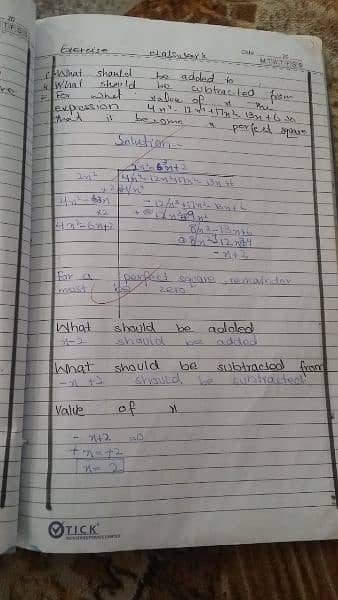 Exercise classwork Date 20
M T W T F S S
i. What should be added to
ii. What should be subtracted from
iii. For what value of x the
expression 4x⁴-12x³+17x²-13x+6 so
that it become a perfect square
Solution:-
2x²-3x+2
2x² 4x⁴-12x³+17x²-13x+6
4x²-3x -12x³+17x²-13x+6
4x²-6x+2 8x²-13x+6
8x²-12x+4
-x+2
For a perfect square remainder
must be zero
What should be added
x-2 should be added
What should be subtracted from
-x+2 should be subtracted
Value of x
-x+2 =0
+x=+2
x=2
TICK